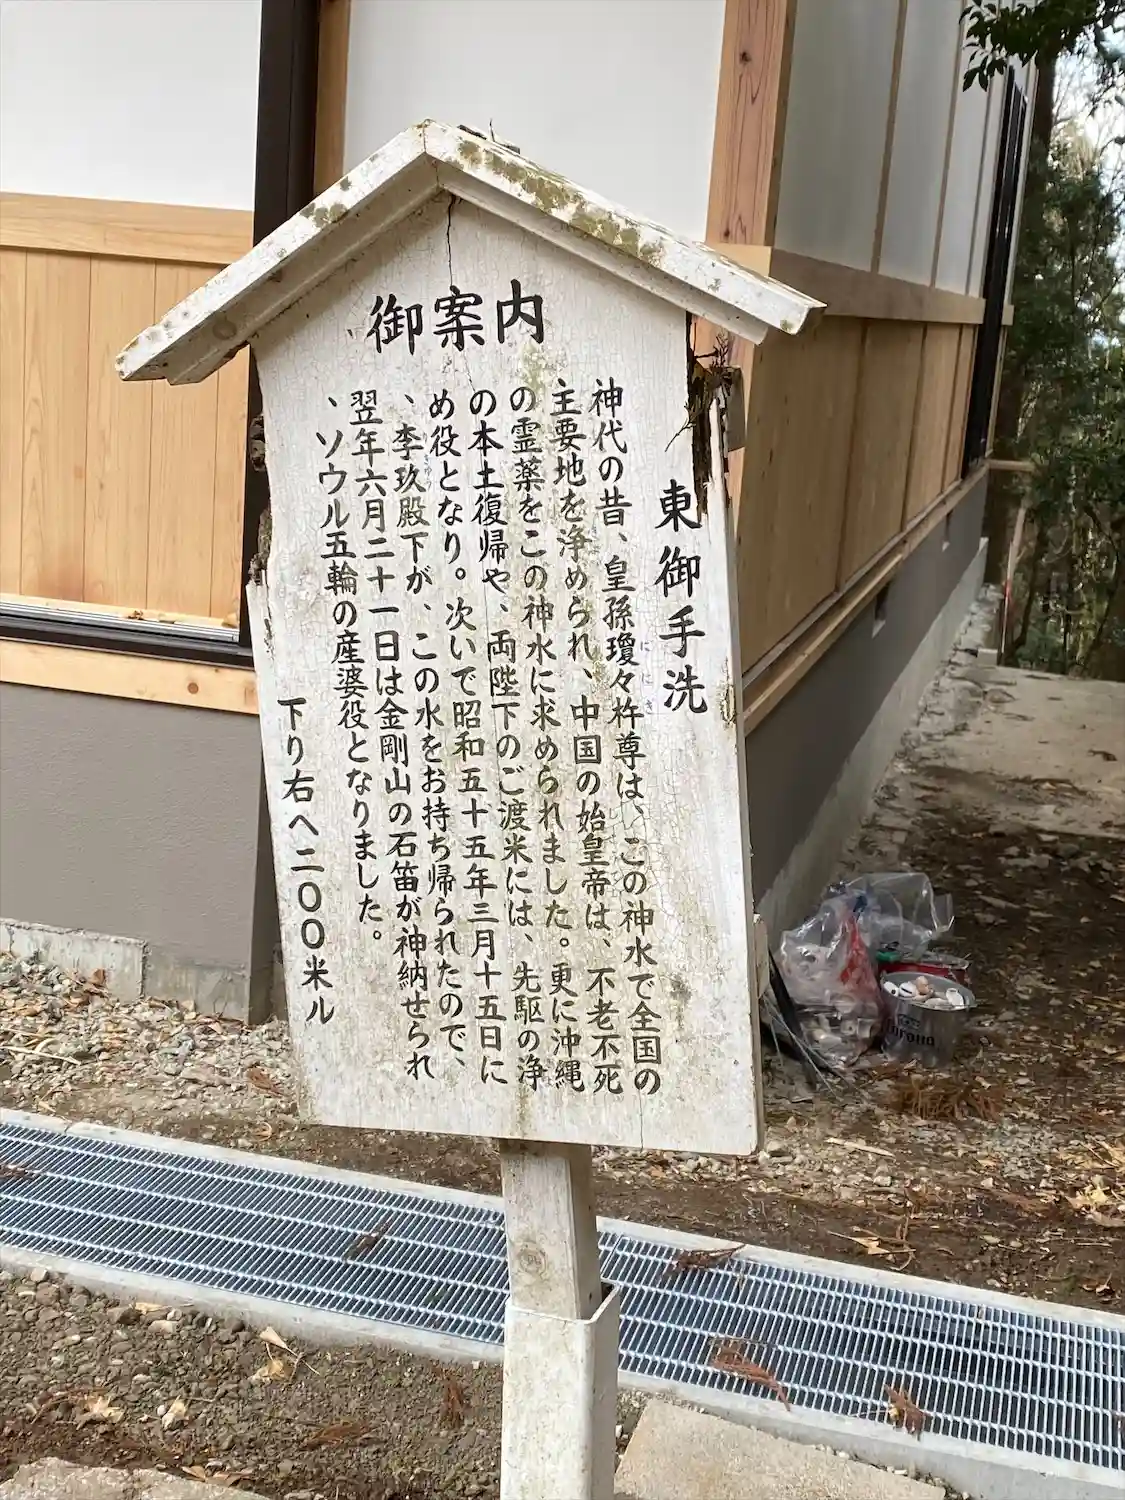 御案内
東御手洗
神代の昔、皇孫瓊々杵尊は、この神水で全国の
ににぎ
主要地を浄められ、中国の始皇帝は、不老不死
の霊薬をこの神水に求められました。更に沖縄
の本土復帰や、両陛下のご渡米には、先駆の浄
め役となり。次いで昭和五十五年三月十五日に
、李玖殿下が、この水をお持ち帰られたので、
翌年六月二十一日は金剛山の石笛が神納せられ
、ソウル五輪の産婆役となりました。
下り右へ二〇〇米ル
Corona